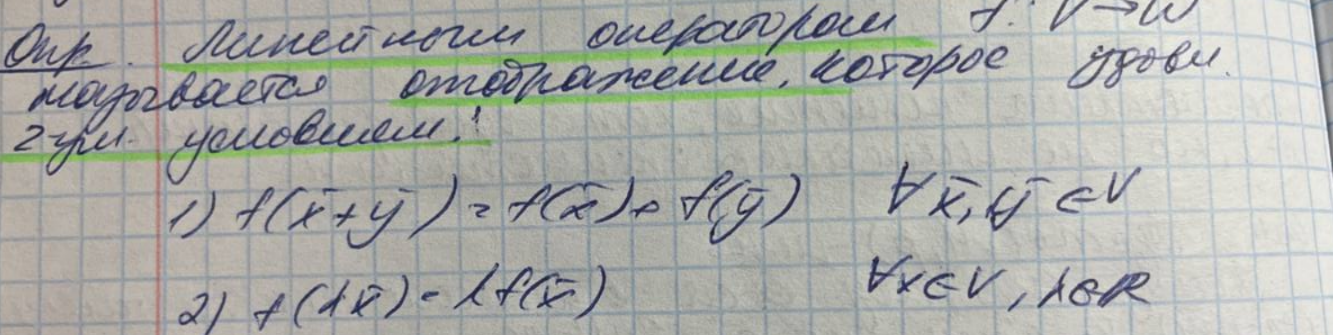 Опр. Линейным оператором f: V→W
называется отображение, которое удовл.
2ум условиям:
1) f(x̄+ȳ) = f(x̄)+ f(ȳ) ∀x̄,ȳ ∈V
2) f(λx̄) = λf(x̄) ∀x∈V, λ∈R